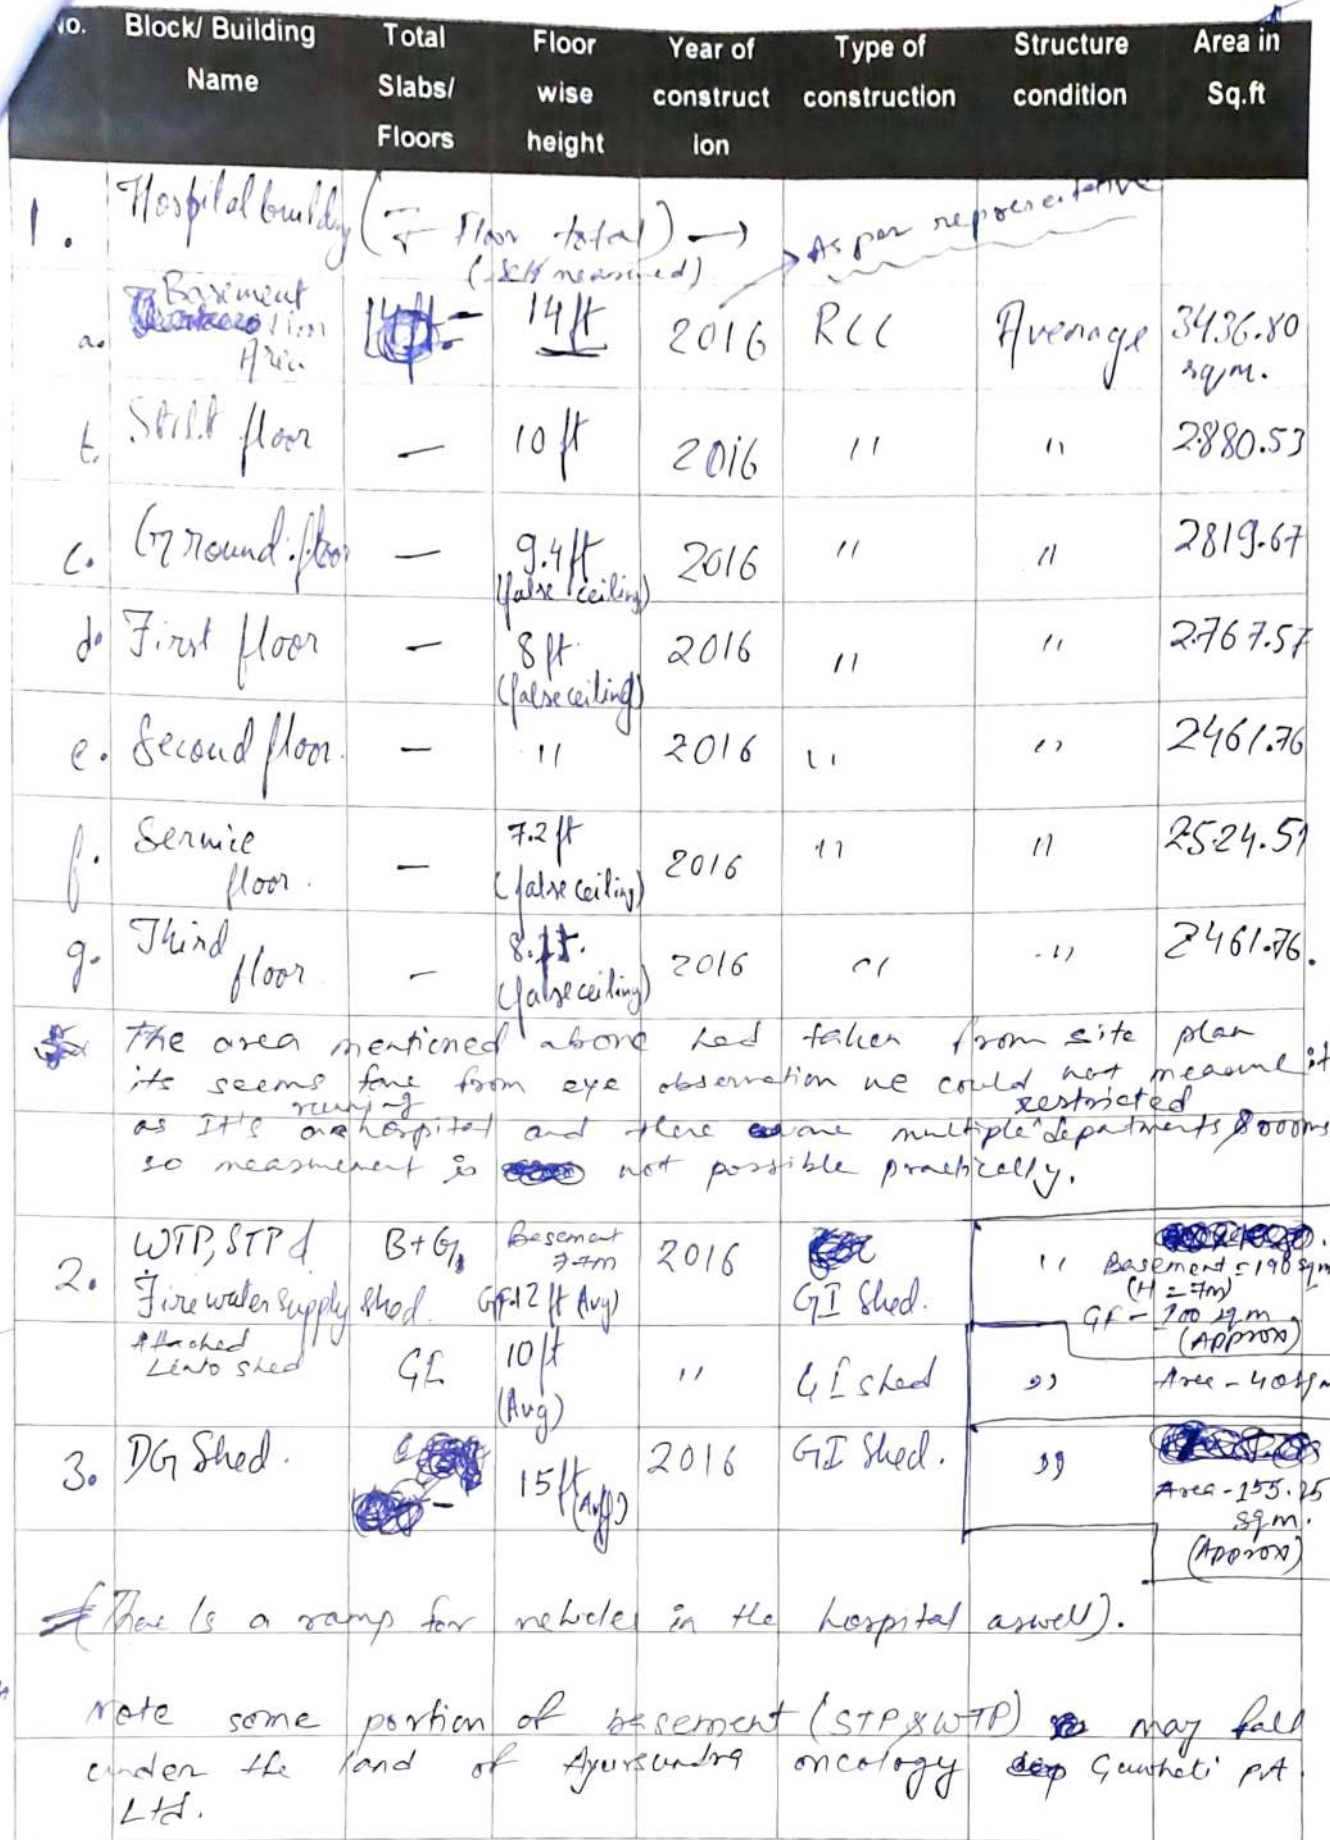 No. Block/ Building Name Total Slabs/ Floors Floor wise height Year of construct ion Type of construction Structure condition Area in Sq.ft
1. Hospital building (7 Floor total) → As per representative
(self measured)
a. Basement Area 14ft 2016 RCC Average 3436.80 sqm.
b. Stilt floor — 10 ft 2016 " " 2880.53
c. Ground floor — 9.4ft (false ceiling) 2016 " " 2819.67
d. First floor — 8 ft (false ceiling) 2016 " " 2767.57
e. Second floor. — " 2016 " " 2461.76
f. Service floor. — 7.2 ft (false ceiling) 2016 " " 2524.51
g. Third floor — (false ceiling) 2016 " " 2461.76.
The area mentioned above had taken from site plan
its seems fine from eye observation we could not measure it
as It's running hospital and there are multiple restricted departments & rooms
so measurment is not possible practically.
2. WTP, STP & Fire water supply shed. B+G, Basement 7.7m GF-12 ft Avg) 2016 GI Shed. " Basement = 190 sqm (H = 7m) GF - 100 sqm (Approx)
Attached Leanto shed GF 10 ft (Avg) " GI shed " Area - 40 sqm
3. DG Shed. - 15ft (Avg) 2016 GI Shed. " Area - 155.25 sqm. (Approx)
(There is a ramp for vehicles in the hospital aswell).
Note some portion of basement (STP & WTP) may fall
under the land of Ayursundra oncology Guwhati pvt
Ltd.